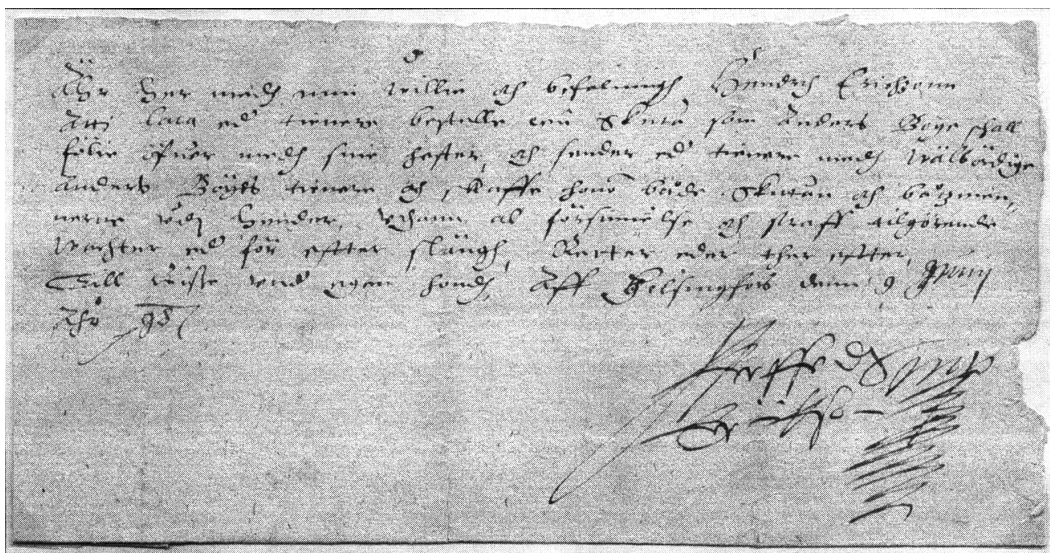 Är her medh min willie och befalningh Hendrich Erichsonn
Atti lata ed tienere bestelle enn Skuta som Anders Boye skall
följe öfuer medh sine hester, och sender ed tienere medh wälbördige
Anders Boijes tienere och skaffe honom både Skutan och båtzmen,
nerne widh hender, vthann al försumelse och straff tilgörende
wachter ed för effter slängh, Retter eder ther effter,
Till wisse vnd egen handh, Aff Helsingfors denn 9 Junij
Åhr 98